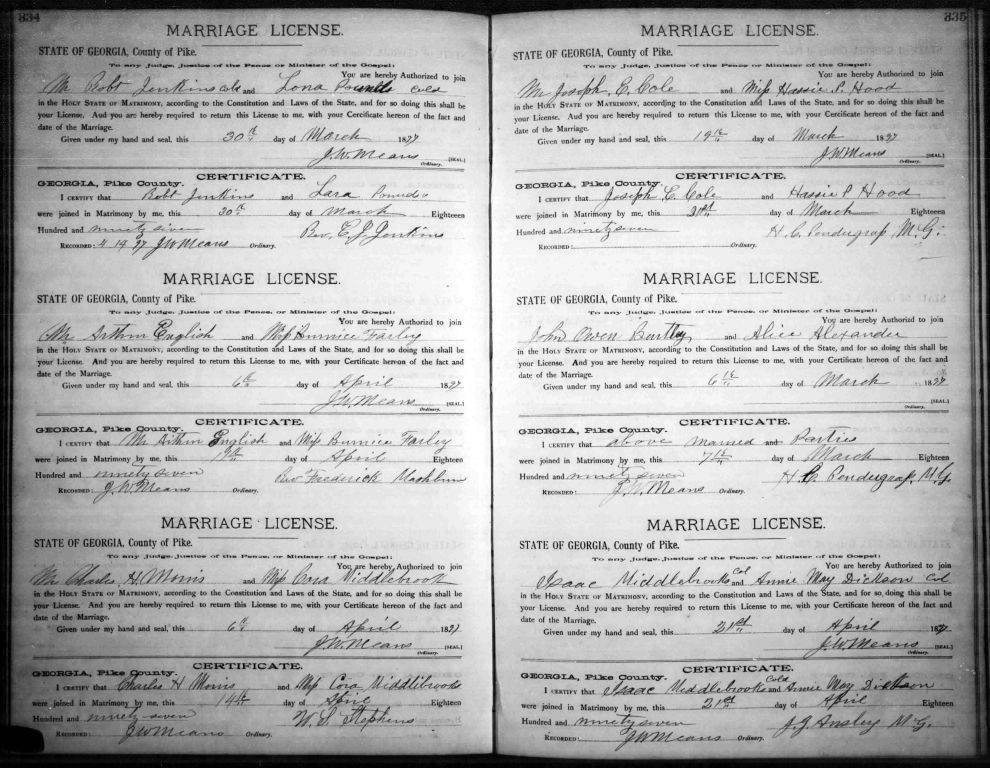 334
MARRIAGE LICENSE.
STATE OF GEORGIA, County of Pike.
To any Judge, Justice of the Peace, or Minister of the Gospel:
You are hereby Authorized to join
Mr Robt Jenkins and Lona Pounds Cold
in the HOLY STATE OF MATRIMONY, according to the Constitution and Laws of the State, and for so doing this shall be
your License. And you are hereby required to return this License to me, with your Certificate hereon of the fact and
date of the Marriage.
Given under my hand and seal, this 30th day of March 1897
J.W. Means [SEAL.]
Ordinary.
CERTIFICATE.
GEORGIA, Pike County.
I CERTIFY that Robt Jenkins and Lara Pounds
were joined in Matrimony by me, this 30th day of March Eighteen
Hundred and ninety seven Rev. E. J. Jenkins
RECORDED: 4 19 97 J W Means Ordinary.
MARRIAGE LICENSE.
STATE OF GEORGIA, County of Pike.
To any Judge, Justice of the Peace, or Minister of the Gospel:
You are hereby Authorized to join
Mr Arthur English and Miss Bunnice Farley
in the HOLY STATE OF MATRIMONY, according to the Constitution and Laws of the State, and for so doing this shall be
your License. And you are hereby required to return this License to me, with your Certificate hereon of the fact and
date of the Marriage.
Given under my hand and seal, this 6th day of April 1897
J.W. Means [SEAL.]
Ordinary.
CERTIFICATE.
GEORGIA, Pike County.
I CERTIFY that Mr Arthur English and Miss Bunnice Farley
were joined in Matrimony by me, this day of April Eighteen
Hundred and ninety seven Rev Frederick Mashburn
RECORDED: J. W. Means Ordinary.
MARRIAGE LICENSE.
STATE OF GEORGIA, County of Pike.
To any Judge, Justice of the Peace, or Minister of the Gospel:
You are hereby Authorized to join
Mr Charles H. Morris and Miss Cora Middlebrook
in the HOLY STATE OF MATRIMONY, according to the Constitution and Laws of the State, and for so doing this shall be
your License. And you are hereby required to return this License to me, with your Certificate hereon of the fact and
date of the Marriage.
Given under my hand and seal, this 6th day of April 1897
J.W. Means [SEAL.]
Ordinary.
CERTIFICATE.
GEORGIA, Pike County.
I CERTIFY that Charles H Morris and Miss Cora Middlebrooks
were joined in Matrimony by me, this 14th day of Eighteen
Hundred and ninety seven W. S. Stephens
RECORDED: J W Means Ordinary.
335
MARRIAGE LICENSE.
STATE OF GEORGIA, County of Pike.
To any Judge, Justice of the Peace, or Minister of the Gospel:
You are hereby Authorized to join
Mr Joseph E. Cole and Miss Hassie P. Hood
in the HOLY STATE OF MATRIMONY, according to the Constitution and Laws of the State, and for so doing this shall be
your License. And you are hereby required to return this License to me, with your Certificate hereon of the fact and
date of the Marriage.
Given under my hand and seal, this 19th day of March 1897
J.W. Means [SEAL.]
Ordinary.
CERTIFICATE.
GEORGIA, Pike County.
I CERTIFY that Joseph E. Cole and Hassie P Hood
were joined in Matrimony by me, this day of March Eighteen
Hundred and ninety seven H. C. Pendergrap, M. G.
RECORDED: Ordinary.
MARRIAGE LICENSE.
STATE OF GEORGIA, County of Pike.
To any Judge, Justice of the Peace, or Minister of the Gospel:
You are hereby Authorized to join
John Owen Bartley and Alice Alexander
in the HOLY STATE OF MATRIMONY, according to the Constitution and Laws of the State, and for so doing this shall be
your License. And you are hereby required to return this License to me, with your Certificate hereon of the fact and
date of the Marriage.
Given under my hand and seal, this 6th day of March 1897
[SEAL.]
Ordinary.
CERTIFICATE.
GEORGIA, Pike County.
I CERTIFY that above named and Parties
were joined in Matrimony by me, this 7th day of March Eighteen
Hundred and ninety seven H. C. Pendergrap, M. G.
RECORDED: J. W. Means Ordinary.
MARRIAGE LICENSE.
STATE OF GEORGIA, County of Pike.
To any Judge, Justice of the Peace, or Minister of the Gospel:
You are hereby Authorized to join
Isaac Middlebrooks Col and Annie May Dickson Col
in the HOLY STATE OF MATRIMONY, according to the Constitution and Laws of the State, and for so doing this shall be
your License. And you are hereby required to return this License to me, with your Certificate hereon of the fact and
date of the Marriage.
Given under my hand and seal, this 21st day of April 1897
J.W. Means [SEAL.]
Ordinary.
CERTIFICATE.
GEORGIA, Pike County.
I CERTIFY that Isaac Middlebrooks Cold and Annie May Dickson
were joined in Matrimony by me, this 21st day of April Eighteen
Hundred and ninety seven J. J. Ansley M. G.
RECORDED: J W Means Ordinary.